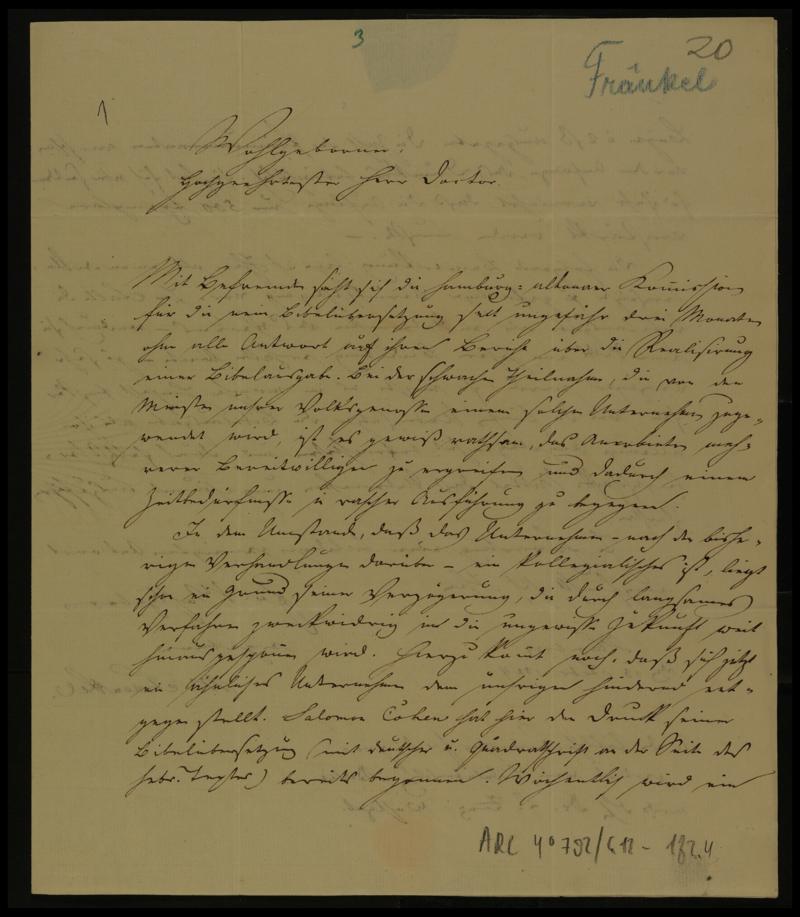 3
20
Fränkel
1
Wohlgeborner,
Hochgeehrtester Herr Doctor.
Mit Befremden sieht sich die hamburg-altonaer Kommission
für die neue Bibelübersetzung seit ungefähr drei Monaten
ohne alle Antwort auf ihren Bericht über die Realisirung
einer Bibelausgabe. Bei der schwachen Theilnahme, die von den
Meisten unserer Volksgenossen einem solchen Unternehmen zuge-
wendet wird, ist es gewiß rathsam, das Anerbieten meh-
rerer Bereitwilligen zu ergreifen und dadurch einem
Zeitbedürfnisse in rascher Ausführung zu begegnen.
In dem Umstande, daß das Unternehmen – nach den bishe-
rigen Verhandlungen darüber – ein kollegialisches ist, liegt
schon ein Grund seiner Verzögerung, die durch langsames
Verfahren zweckwidrig in die ungewisse Zukunft weit
hinausgesponnen wird. Hierzu kommt noch, daß sich jetzt
ein ähnliches Unternehmen dem unsrigen hindernd ent-
gegen stellt. Salomon Cohen hat hier den Druck seiner
Bibelübersetzung (mit deutscher u. Quadratschrift an der Seite des
hebr. Textes) bereits begonnen. Wöchentlich wird ein
ARC 4° 792/C12 - 182.4